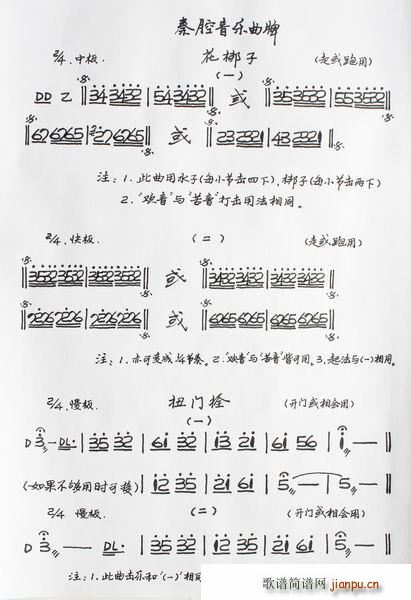 秦腔音乐曲牌
2/4 中板 花梆子 (走或跑用)
(一)
DD 乙 ‖: 34 3432 | 54 3432 :‖ 或 ‖: 35 3532 | 55 3532 :‖
‖: 62 6265 | 22 6265 :‖ 或 ‖: 23 2321 | 43 2321 :‖
注: 1. 此曲用水子(每小节击四下), 梆子(每小节击两下)
2. "欢音"与"苦音"打击用法相同。
2/4. 快板 (二) (走或跑用)
‖: 3532 3532 | 3532 3532 :‖ 或 ‖: 3432 3432 | 3432 3432 :‖
‖: 2226 2226 | 2226 2226 :‖ 或 ‖: 6265 6265 | 6265 6265 :‖
注: 1. 亦可变成 ¼节奏。 2. "欢音"与"苦音"皆可用。 3. 起法与(一)相同。
2/4. 慢板 扭门栓 (开门或相会用)
(一)
D 3 — DL· | 35 32 | 61 32 | 13 21 | 61 56 | 1 — |
(如果不够用时可接) | 12 35 | 21 61 | 5 — | 5 — |
2/4 慢板 (二) (开门或相会用)
D 3 — DL· | 35 32 | 12 35 | 21 61 | 5 — |
注: 1. 此曲击乐和"(一)"相
歌谱简谱网
jianpu.cn